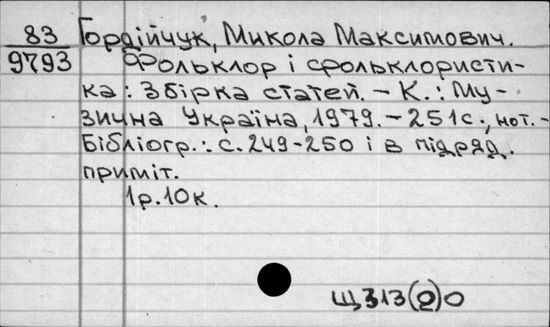 83 Гордійчук, Микола Максимович.
9793 Фольклор і фольклористи-
ка: Збірка статей. – К.: Му-
зична Україна, 1979. – 251с., нот. –
Бібліогр.: с. 249-250 і в підряд.
приміт.
1р.10к.
Щ313(2)0